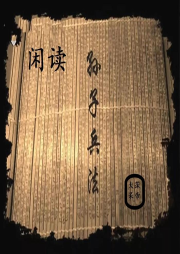 闲读
孙子兵法